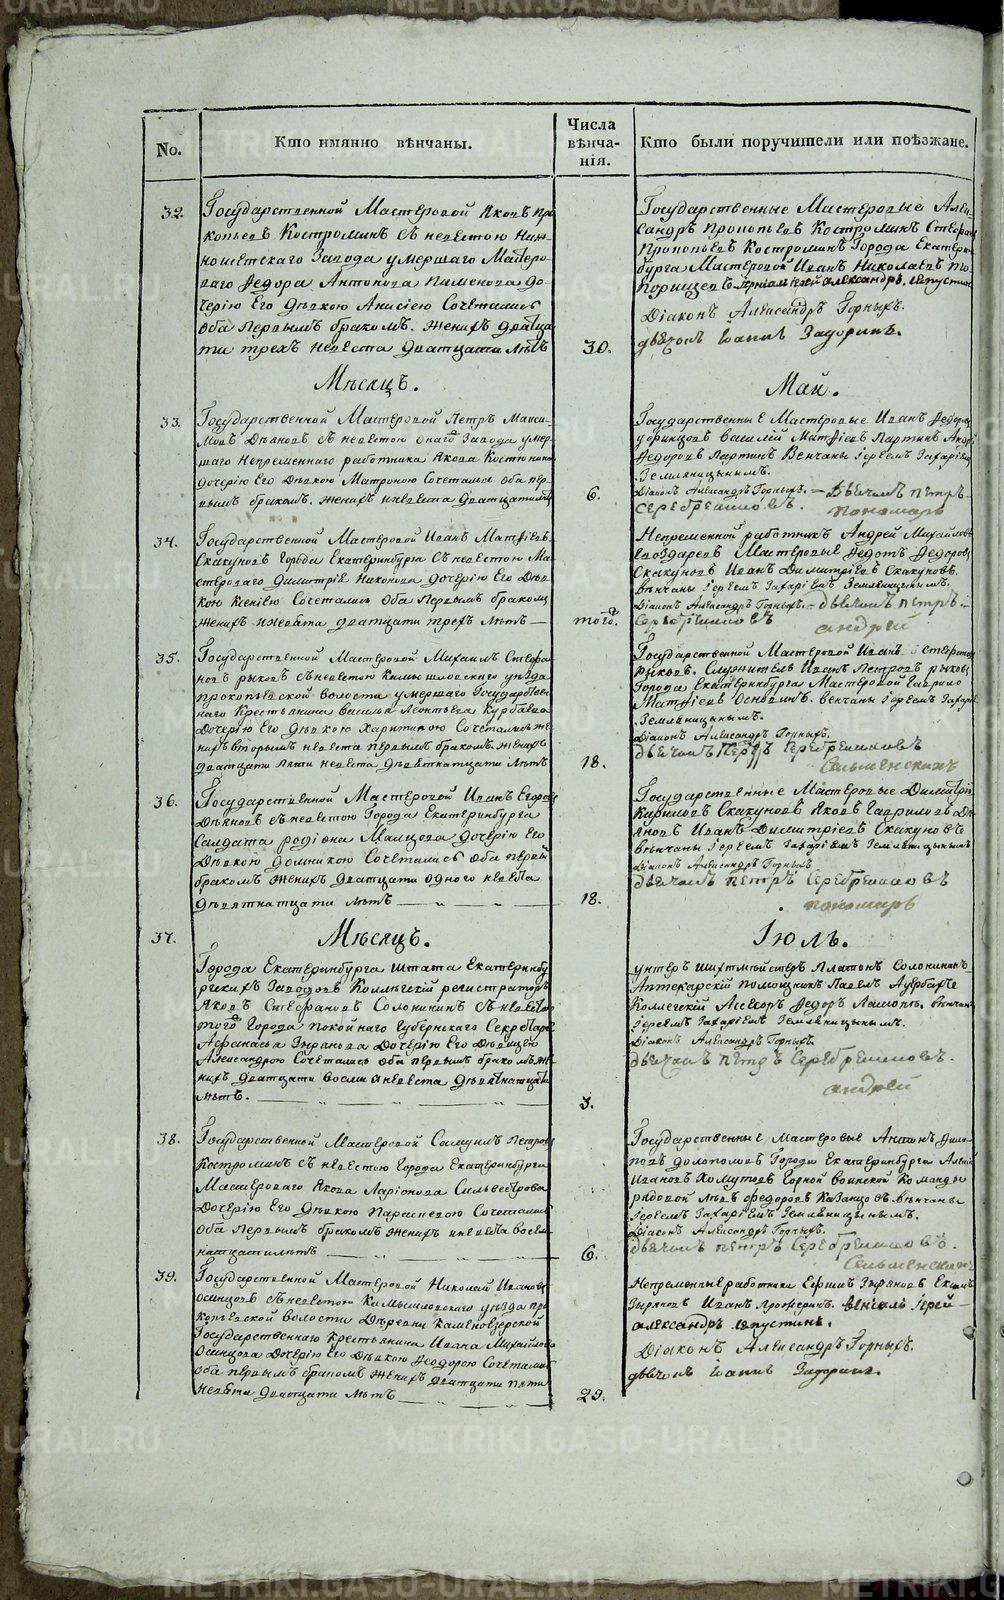 No.
Кто имянно вѣнчаны.
Числа вѣнча-
нія.
Кто были поручители или поѣзжане.
32.
Государственной Мастеровой Яковъ Про
копьевъ Костроминъ съ невестою Ниж
Завода умершаго Мастеро-
ваго Федора Антонова Пименова до-
черію Его Дѣвкою Анисіею Сочетались
оба Первымъ бракомъ. Женихъ дватца
ти трехъ невеста дватцати лѣтъ
30.
Государственные Мастеровые Алек
сандръ Прокопьевъ Костроминъ Стефанъ
Прокопьевъ Костроминъ Города Екатерин
бурга Мастеровой Иванъ Николаевъ То
порищевъ александръ
Діаконъ Александръ Горныхъ.
дьячокъ Іоаннъ Задоринъ.
Мѣсяцъ.
Май.
33.
Государственной Мастеровой Петръ Макси-
мовъ Дѣяновъ съ невестою онаго Завода умер
шаго Непременнаго работника Якова
дочерію Его Дѣвкою Матроною Сочетались оба пер
вымъ бракомъ. Женихъ и невеста дватцати
6.
Государственные Мастеровые Иванъ Федоровъ
Василій Матфіевъ Ларкинъ Андр
Федоровъ Ларкинъ Венчаны Іереемъ Захаріемъ
Земляницынымъ.
Діаконъ Александръ Горныхъ. — Дьячокъ петръ
Серебренниковъ.
пономарь
34.
Государственной Мастеровой Иванъ Матфіевъ
Скакуновъ Города Екатеринбурга Съ невестою Ма
стероваго Димитрія Никонова дочерію Его Дѣв
кою Ксеніею Сочетались Оба Первымъ бракомъ
Женихъ и невеста дватцати трехъ лѣтъ —
того.
Непременной работникъ Андрей Михайловъ
Гвоздаревъ Мастеровые Федотъ Федоровъ
Скакуновъ Иванъ Димитріевъ Скакуновъ.
вѣнчаны Іереемъ Захаріемъ Земляницынымъ.
Діаконъ Александръ Горныхъ. — дьячокъ петръ
Серебренниковъ
андрей
35.
Государственной Мастеровой Михаилъ Стефа
новъ рыковъ съ невестою Камышловскаго уѣзда
прокопьевской волости умершаго Государствен
наго Крестьянина Василья Леонтьева Курбатова
Дочерію Его Дѣвкою Харитиною Сочетались же
нихъ вторымъ невеста первымъ бракомъ. Женихъ
дватцати пяти невеста Девятнатцати лѣтъ
18.
Государственной Мастеровой Иванъ Стефановъ
рыковъ. Служитель Иванъ Петровъ рыковъ
Города Екатеринбурга Мастеровой Гаврило
Матфіевъ Основинъ. венчаны Іереемъ Захаріемъ
Земляницынымъ.
Діаконъ Александръ Горныхъ.
дьячокъ Петръ Серебренниковъ
36.
Государственной Мастеровой Иванъ Егоровъ
Дѣяновъ съ невестою Города Екатеринбурга
Салдата родіона Малцова дочерію Его
Дѣвкою домникою Сочетались оба первымъ
бракомъ Женихъ дватцати одного невеста
Девятнатцати лѣтъ —
18.
Государственные Мастеровые Димитрій
Кириловъ Скакуновъ Яковъ Гавриловъ Дѣ
яновъ Иванъ Димитріевъ Скакуновъ
вѣнчаны Іереемъ Захаріемъ Земляницынымъ
Діаконъ Александръ Горныхъ
дьячокъ петръ Серебренниковъ
пономарь
Мѣсяцъ.
Іюль.
37.
Города Екатеринбурга штата Екатеринбу
ргскихъ Заводовъ Коллежскій регистраторъ
Яковъ Стефановъ Солонининъ съ невестою
того Города покойнаго Губернскаго Секретаря
Афанасья Зырянова Дочерію Его Дѣвицею
Александрою Сочетались оба первымъ бракомъ. Же
нихъ дватцати восьми а невеста Девятнатцати
лѣтъ.
3.
унтеръ шихтмейстеръ Платонъ Солонининъ
Аптекарскій помощникъ Павелъ Ауербахъ
Колежскій Асесоръ Федоръ вѣнчаны
Іереемъ Захаріемъ Земляницынымъ.
Діаконъ Александръ Горныхъ
дьячокъ петръ Серебренниковъ.
андрей
38.
Государственной Мастеровой Самуилъ Петровъ
Костроминъ съ невестою Города Екатеринбурга
Мастероваго Якова Ларіонова Сильвестрова
Дочерію Его Дѣвкою Парасневою Сочетались
оба Первымъ бракомъ Женихъ и невеста восем
натцати лѣтъ —
6.
Государственные Мастеровые Антонъ
Долополовъ Города Екатеринбурга
Ивановъ Хомутовъ Горной воинской Команды
рядовой Львъ федоровъ Казанцовъ. вѣнчаны
Іереемъ Захаріемъ Земляницынымъ.
Діаконъ Александръ Горныхъ.
дьячокъ петръ Серебренниковъ.
39.
Государственной Мастеровой Николай Ивановъ
Осинцовъ съ невестою Камышловскаго уѣзда про
копьевской волости Деревни Каменоозерской
Государственнаго Крестьянина Ивана Михайлова
Осинцова Дочерію Его Дѣвкою Феодорою Сочетались
оба первымъ бракомъ Женихъ дватцати пяти
невеста дватцати лѣтъ
29.
Непременные работники Ефимъ Зыряновъ Екимъ
Зыряновъ Иванъ венчалъ Іерей
александръ
Діаконъ Александръ Горныхъ.
дьячокъ Іоаннъ Задоринъ.